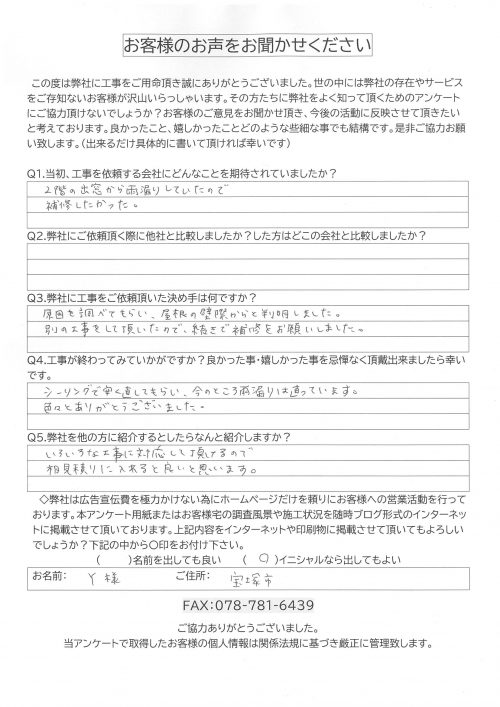 お客様のお声をお聞かせください
この度は弊社に工事をご用命頂き誠にありがとうございました。世の中には弊社の存在やサービス
をご存知ないお客様が沢山いらっしゃいます。その方たちに弊社をよく知って頂くためのアンケート
にご協力頂けないでしょうか？お客様のご意見をお聞かせ頂き、今後の活動に反映させて頂きたい
と考えております。良かったこと、嬉しかったことどのような些細な事でも結構です。是非ご協力お願
い致します。（出来るだけ具体的に書いて頂ければ幸いです）
Q1.当初、工事を依頼する会社にどんなことを期待されていましたか？
2階の出窓から雨漏りしていたので
補修したかった。
Q2.弊社にご依頼頂く際に他社と比較しましたか？した方はどこの会社と比較しましたか？
Q3.弊社に工事をご依頼頂いた決め手は何ですか？
原因を調べてもらい、屋根の壁際からと判明しました。
別の工事をして頂いたので、続きで補修をお願いしました。
Q4.工事が終わってみていかがですか？良かった事・嬉しかった事を忌憚なく頂戴出来ましたら幸い
です。
シーリングで安く直してもらい、今のところ雨漏りは直っています。
色々とありがとうございました。
Q5.弊社を他の方に紹介するとしたらなんと紹介しますか？
いろいろな工事に対応して頂けるので
相見積りに入れると良いと思います。
◇弊社は広告宣伝費を極力かけない為にホームページだけを頼りにお客様への営業活動を行って
おります。本アンケート用紙またはお客様宅の調査風景や施工状況を随時ブログ形式のインターネッ
トに掲載させて頂いております。上記内容をインターネットや印刷物に掲載させて頂いてもよろしい
でしょうか？下記の中から〇印をお付け下さい。
（　　）名前を出しても良い　（ 〇 ）イニシャルなら出してもよい
お名前：　Y 様　ご住所：　宝塚市
FAX：078-781-6439
ご協力ありがとうございました。
当アンケートで取得したお客様の個人情報は関係法規に基づき厳正に管理致します。